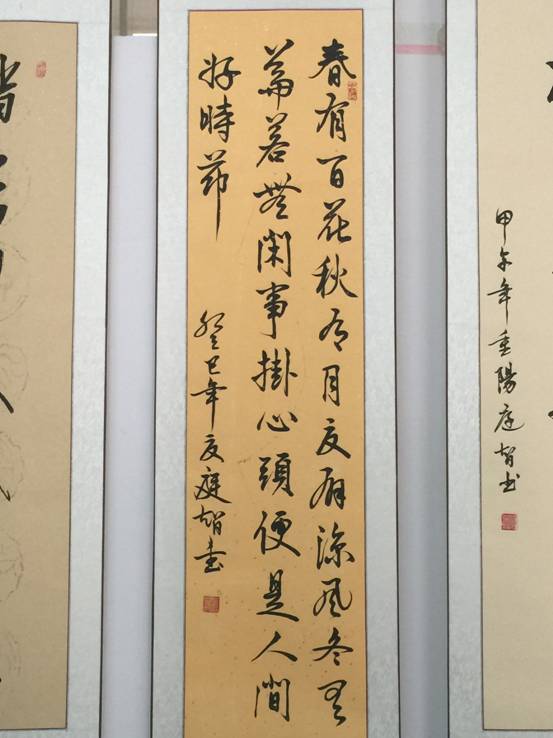 甲午年重陽庭智书
春有百花秋有月夏有涼風冬有
雪若無閑事掛心頭便是人間
好時節
癸巳年夏庭智書